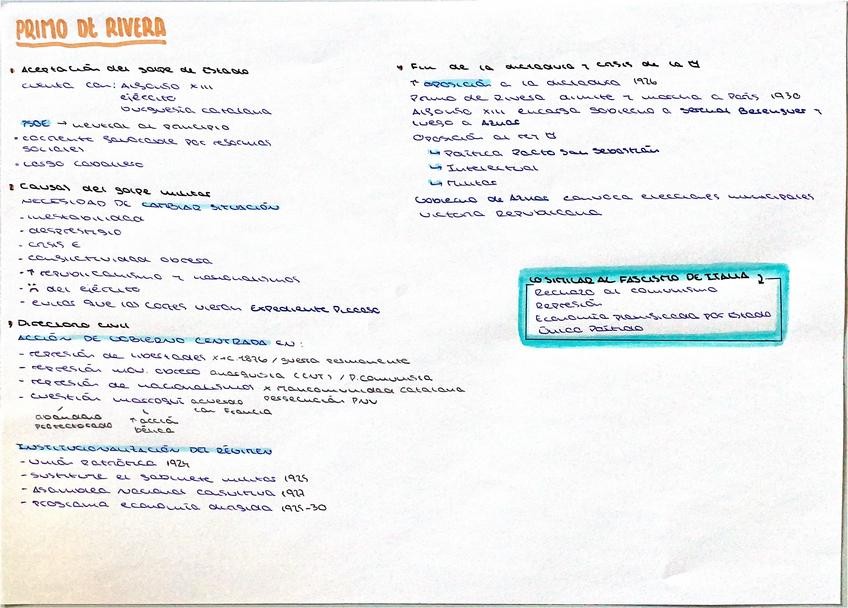 PRIMO DE RIVERA
1 Aceptación del golpe de Estado
cuenta con: Alfonso XIII
ejército
burguesía catalana
PSOE → neutral al principio
• corriente favorable por reformas
sociales
• Largo Caballero
2 Causas del golpe militar
NECESIDAD DE CAMBIAR SITUACIÓN
- inestabilidad
- desprestigio
- crisis E
- conflictividad obrera
- ↑ republicanismo y nacionalismos
- del ejército
- evitar que las cortes vieran Expediente Picasso
3 Directorio civil
ACCIÓN DE GOBIERNO CENTRADA EN:
- represión de libertades x-c.1876 / guerra permanente
- represión mov. obrero anarquista (CNT) / P.comunista
- represión de nacionalismos x Mancomunidad catalana
- cuestión marroquí acuerdo persecución PNV
con Francia
abandono ↑ acción
protectorado bélica
INSTITUCIONALIZACIÓN DEL RÉGIMEN
- Unión Patriótica 1924
- sustituye el gabinete militar 1925
- Asamblea Nacional Consultiva 1927
- programa economía dirigida 1925-30
4 Fin de la dictadura y crisis de la
↑ oposición a la dictadura 1926
Primo de Rivera dimite y marcha a París 1930
Alfonso XIII encarga gobierno a general Berenguer y
luego a Aznar
Oposición al rey
↳ Política Pacto San Sebastián
↳ Intelectual
↳ Militar
Gobierno de Aznar convoca elecciones municipales
victoria republicana
LO SIMILAR AL FASCISMO DE ITALIA
Rechazo al comunismo
Represión
Economía planificada por Estado
Único Partido